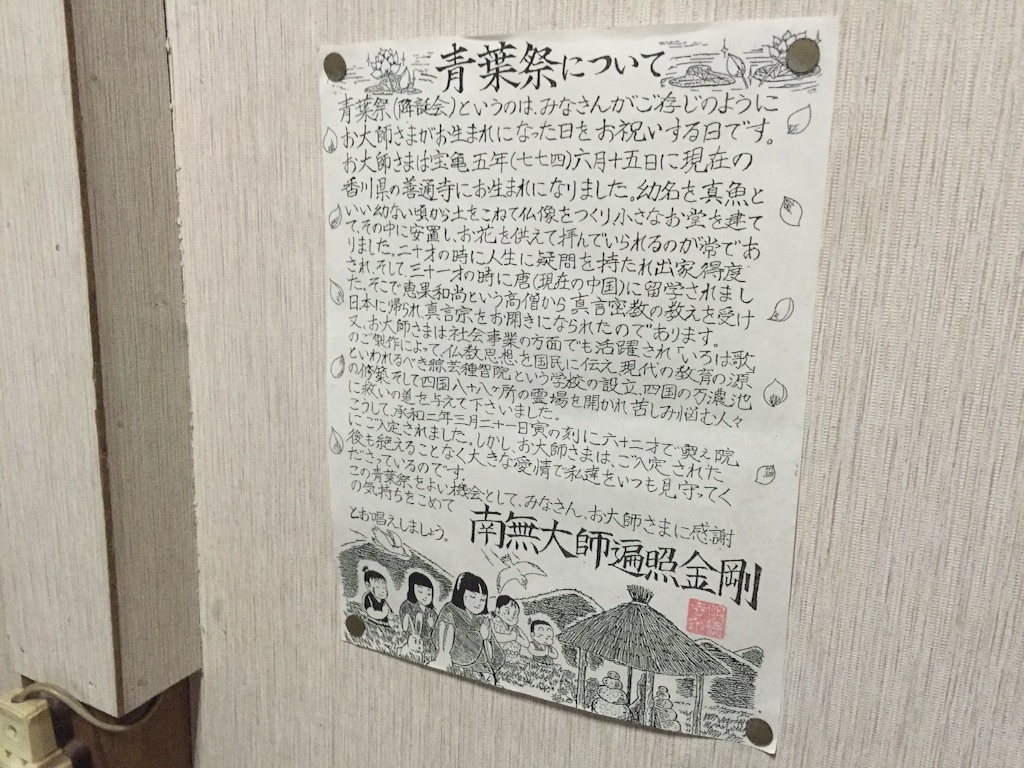 青葉祭について
青葉祭(降誕会)というのは、みなさんがご存じのように
お大師さまがお生まれになった日をお祝いする日です。
お大師さまは宝亀五年(七七四)六月十五日に現在の
香川県の善通寺にお生まれになりました。幼名を真魚と
いい幼ない頃から土をこねて仏像をつくり小さなお堂を建て
て、その中に安置し、お花を供えて拝んでいられるのが常であ
りました。二十才の時に人生に疑問を持たれ出家得度
され、そして三十一才の時に唐(現在の中国)に留学されまし
た。そこで恵果和尚という高僧から真言密教の教えを受け
日本に帰られ真言宗をお開きになられたのであります。
又、お大師さまは社会事業の方面でも活躍され「いろは歌」
のご製作によって、仏教思想を国民に伝え現代の教育の源
といわれるべき綜芸種智院という学校の設立、四国の万濃池
の修築、そして四国八十八ヶ所の霊場を開かれ苦しみ悩む人々
に救いの道を与えて下さいました。
こうして、承和二年三月二十一日寅の刻に六十二才で奥之院
にご入定されました。しかし、お大師さまは、ご入定された
後も絶えることなく大きな愛情で私達をいつも見守ってく
ださっているのです。
この青葉祭をよい機会として、みなさん、お大師さまに感謝
の気持ちをこめて
南無大師遍照金剛
とお唱えしましょう。